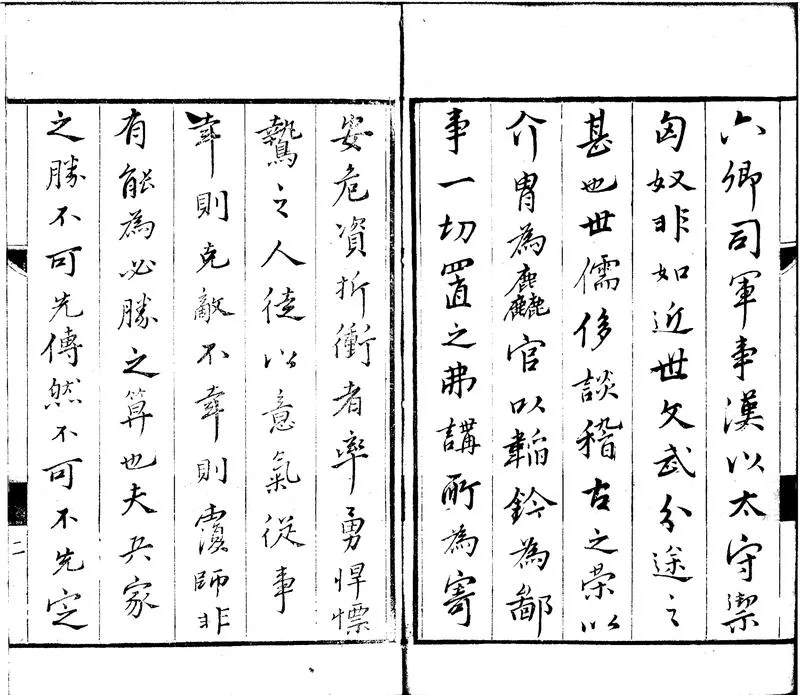 六卿司軍事漢以太守禦
匈奴非如近世文武分途之
甚也世儒侈談稽古之榮以
介冑為麤官以韜鈐為鄙
事一切置之弗講所為寄
安危資折衝者率勇悍慓
鷙之人徒以意氣從事
幸則克敵不幸則覆師非
有能為必勝之算也夫兵家
之勝不可先傳然不可不先定
二